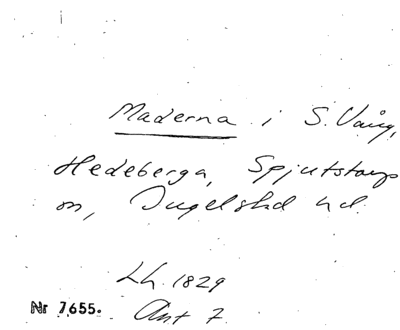 Maderna i S. Vång,
Hedeberga, Spjutstorps
sn, Ingelstad hd.
Lh. 1829
Akt 7
Nr 7655.